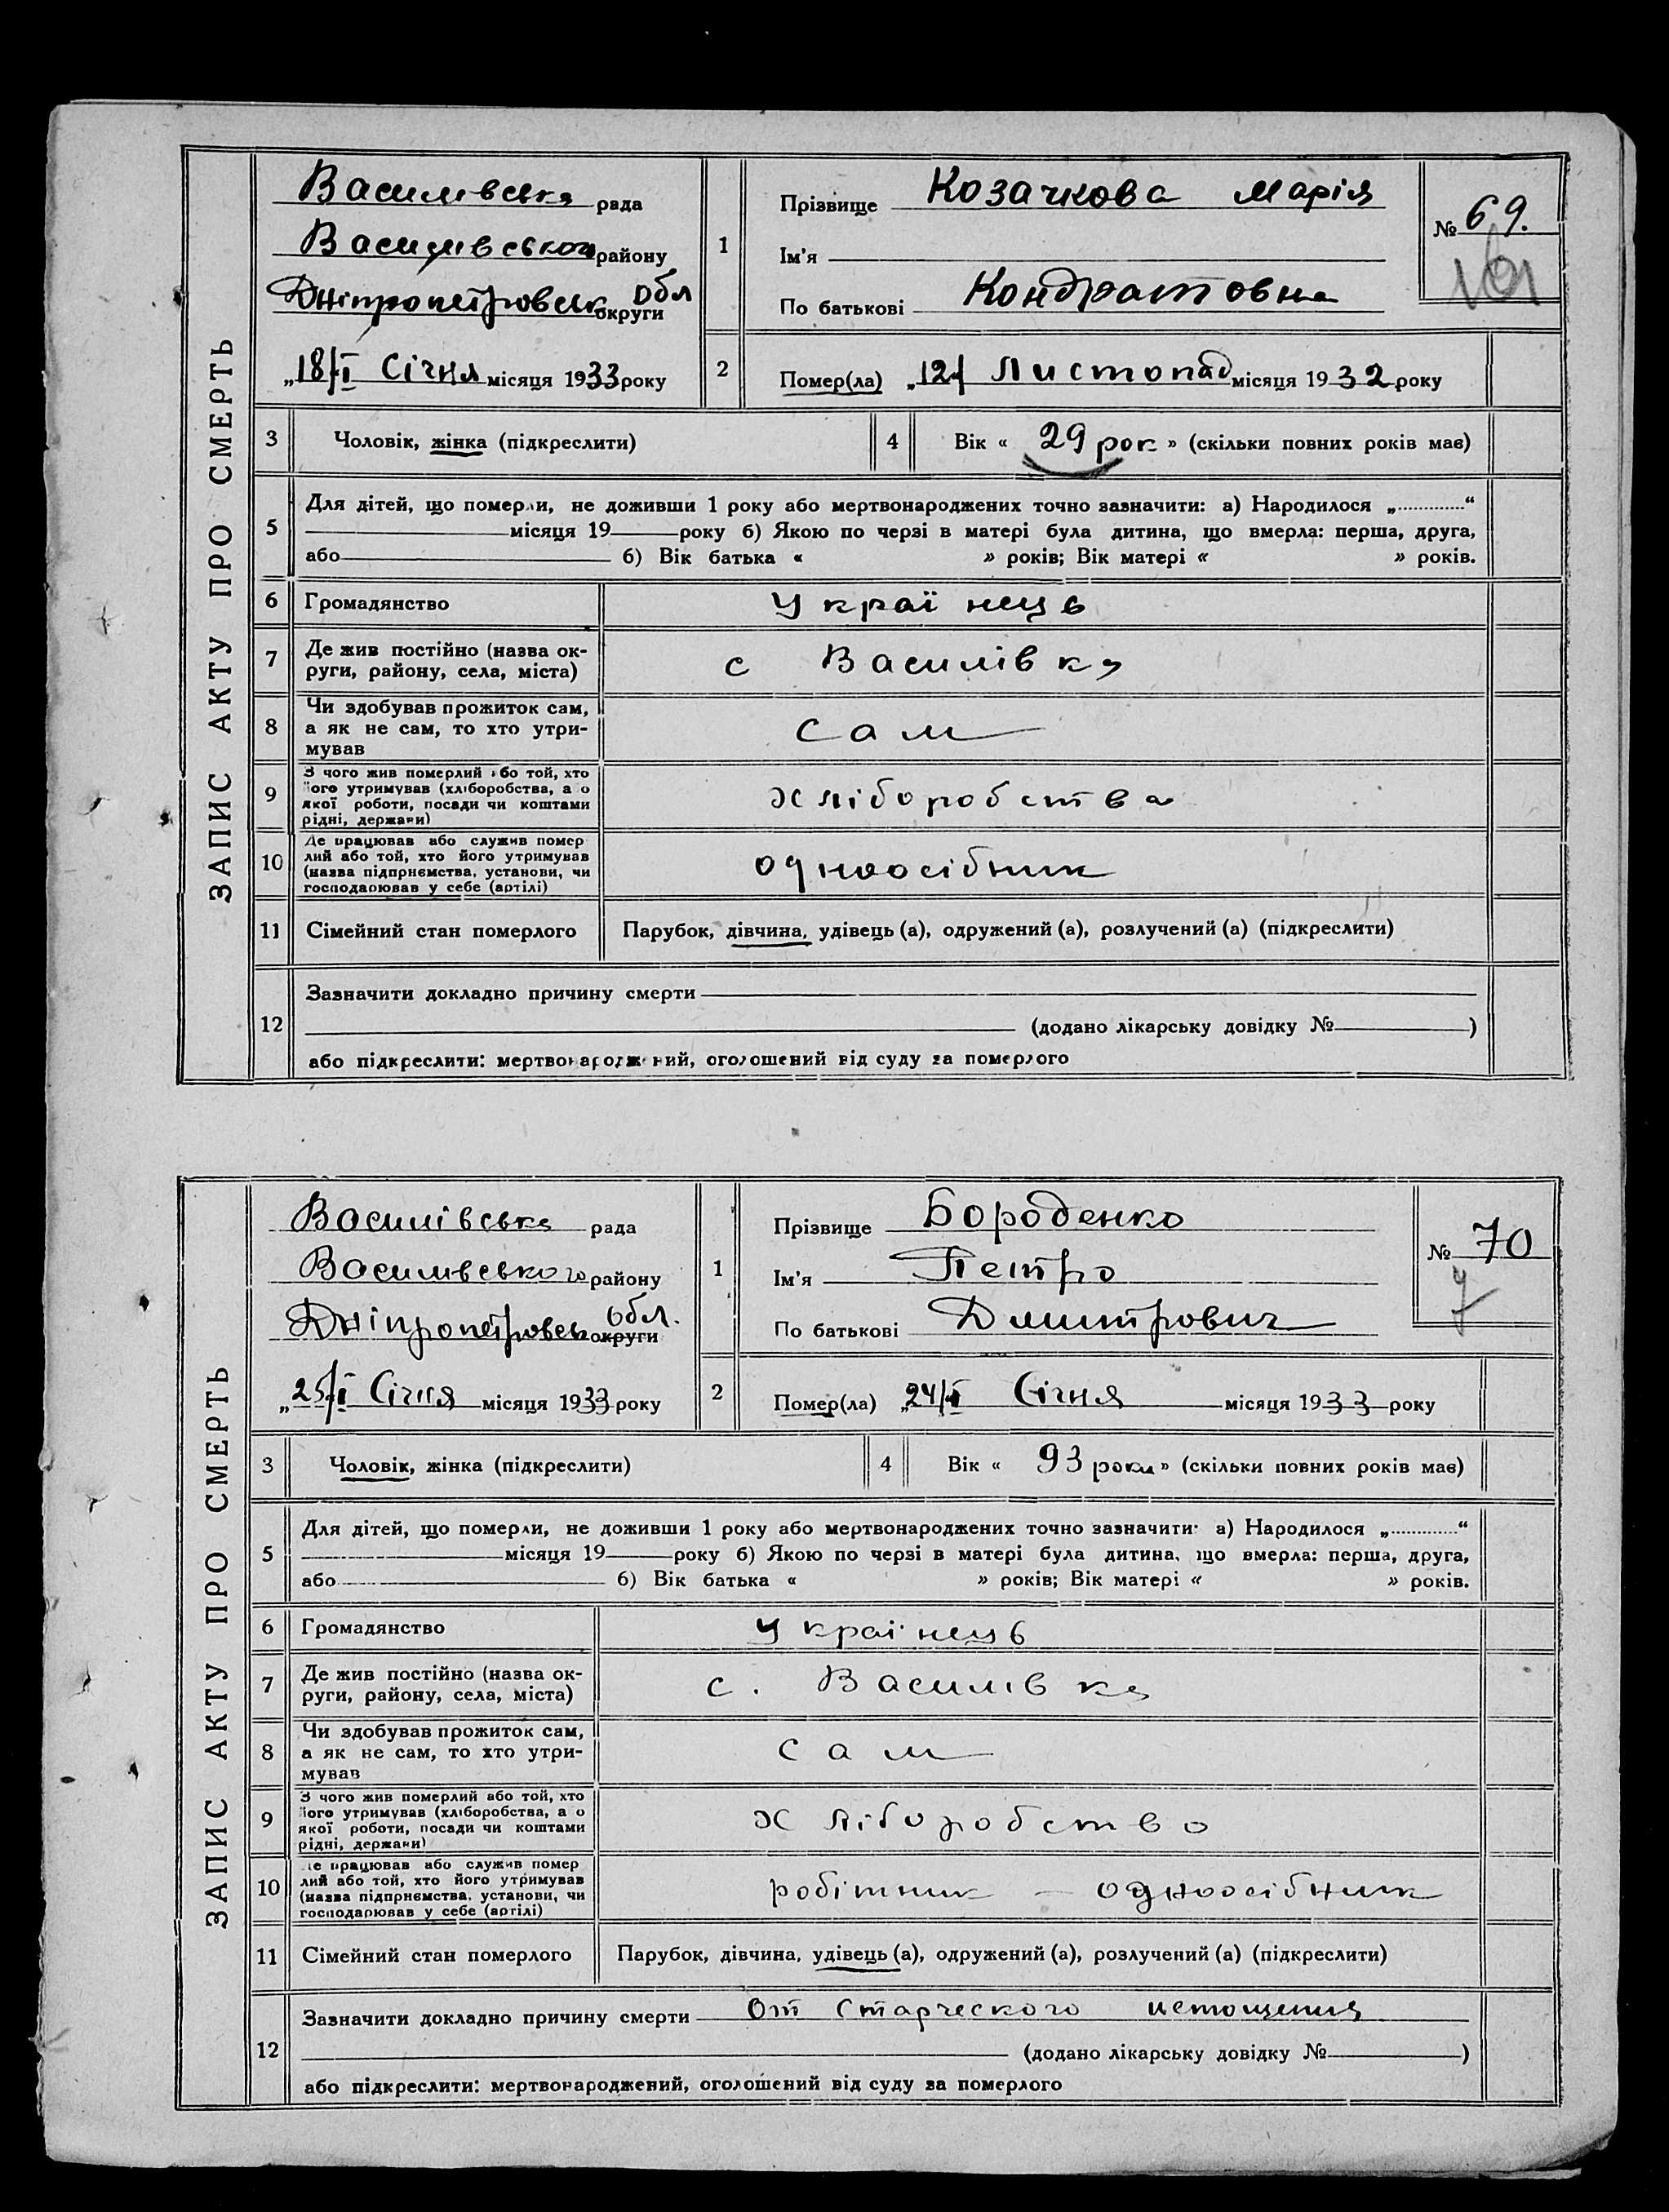 ЗАПИС АКТУ ПРО СМЕРТЬ
Василівська рада
Василівського району
Дніпропетровськ округи обл
„18/I Січня місяця 1933 року
1
Прізвище Козачкова Марія
Ім'я
По батькові Кондратовна
№ 69.
2
Помер(ла) „12/ Листопад місяця 1932 року
3 Чоловік, жінка (підкреслити)
4 Вік « 29 рок » (скільки повних років має)
5
Для дітей, що померли, не доживши 1 року або мертвонароджених точно зазначити: а) Народилося „.............“
місяця 19 року б) Якою по черзі в матері була дитина, що вмерла: перша, друга,
або б) Вік батька « » років; Вік матері « » років.
6 Громадянство Українець
7 Де жив постійно (назва ок-
руги, району, села, міста) с Василівка
8 Чи здобував прожиток сам,
а як не сам, то хто утри-
мував сам
9 З чого жив померлий або той, хто
його утримував (хліборобства, а о
якої роботи, посади чи коштами
рідні, держави) Хліборобства
10 Де працював або служив помер
лий або той, хто його утримував
(назва підприємства, установи, чи
господарював у себе (артілі) одноосібник
11 Сімейний стан померлого Парубок, дівчина, удівець (а), одружений (а), розлучений (а) (підкреслити)
12
Зазначити докладно причину смерти
(додано лікарську довідку № )
або підкреслити: мертвонароджений, оголошений від суду за померлого
ЗАПИС АКТУ ПРО СМЕРТЬ
Василівська рада
Василівського району
Дніпропетровськ округи обл.
„25/I Січня місяця 1933 року
1
Прізвище Бороденко
Ім'я Петро
По батькові Дмитрович
№ 70
7
2
Помер(ла) „24/I Січня місяця 1933 року
3 Чоловік, жінка (підкреслити)
4 Вік « 93 роки » (скільки повних років має)
5
Для дітей, що померли, не доживши 1 року або мертвонароджених точно зазначити: а) Народилося „.............“
місяця 19 року б) Якою по черзі в матері була дитина, що вмерла: перша, друга,
або б) Вік батька « » років; Вік матері « » років.
6 Громадянство Українець
7 Де жив постійно (назва ок-
руги, району, села, міста) с. Василівка
8 Чи здобував прожиток сам,
а як не сам, то хто утри-
мував сам
9 З чого жив померлий або той, хто
його утримував (хліборобства, а о
якої роботи, посади чи коштами
рідні, держави) Хліборобство
10 Де працював або служив помер
лий або той, хто його утримував
(назва підприємства, установи, чи
господарював у себе (артілі) робітник — одноосібник
11 Сімейний стан померлого Парубок, дівчина, удівець (а), одружений (а), розлучений (а) (підкреслити)
12
Зазначити докладно причину смерти От старческого истощения
(додано лікарську довідку № )
або підкреслити: мертвонароджений, оголошений від суду за померлого